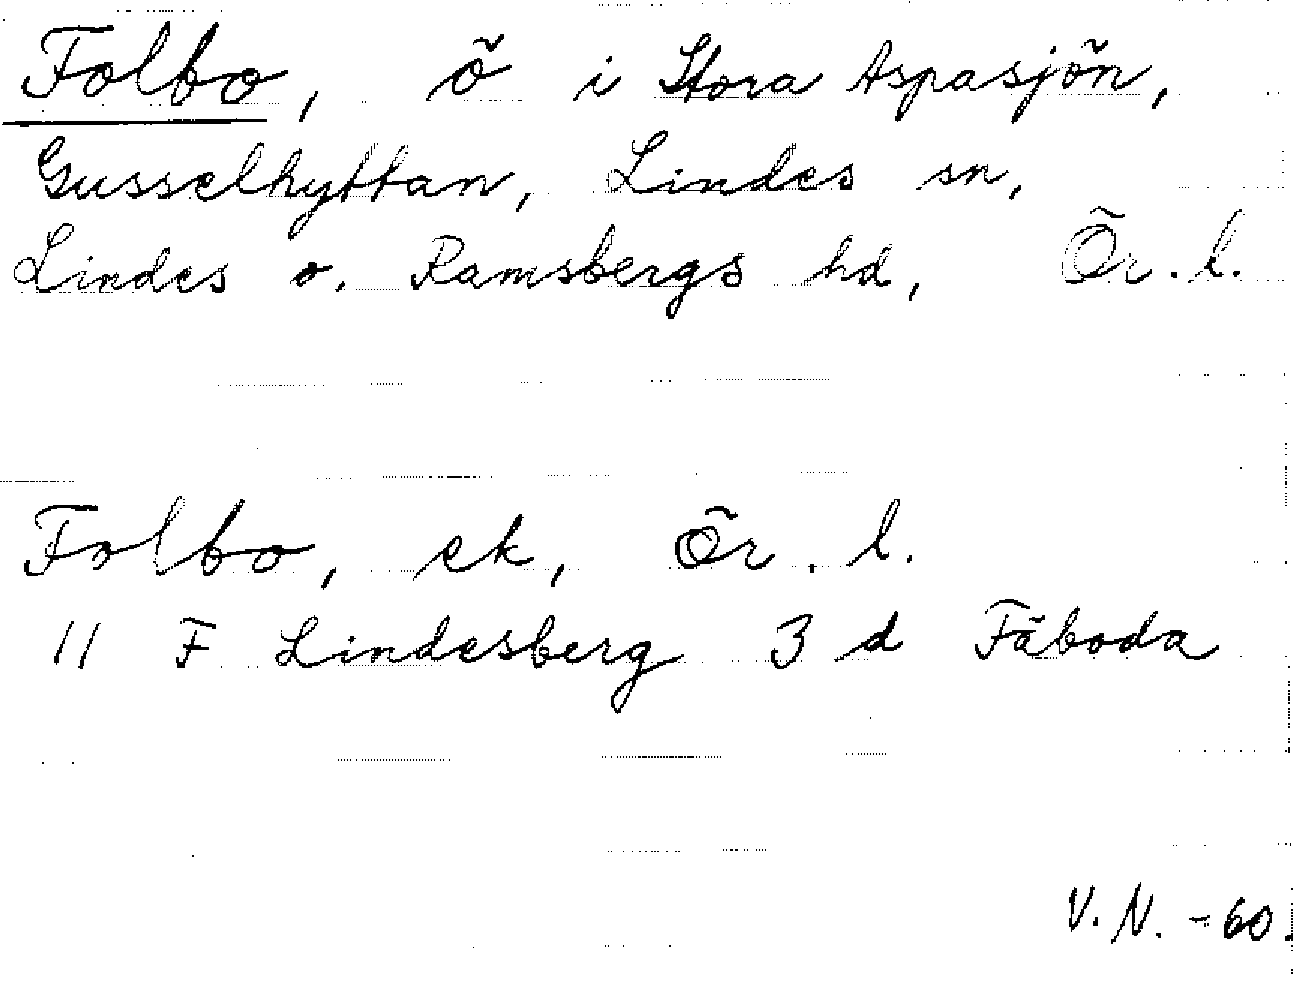 Folbo, ö i Stora Aspasjön,
Gusselhyttan, Lindes sn,
Lindes o. Ramsbergs hd, Ör. l.
Folbo, ek, Ör. l.
11 F Lindesberg 3 d Fäboda
V. N. -60.